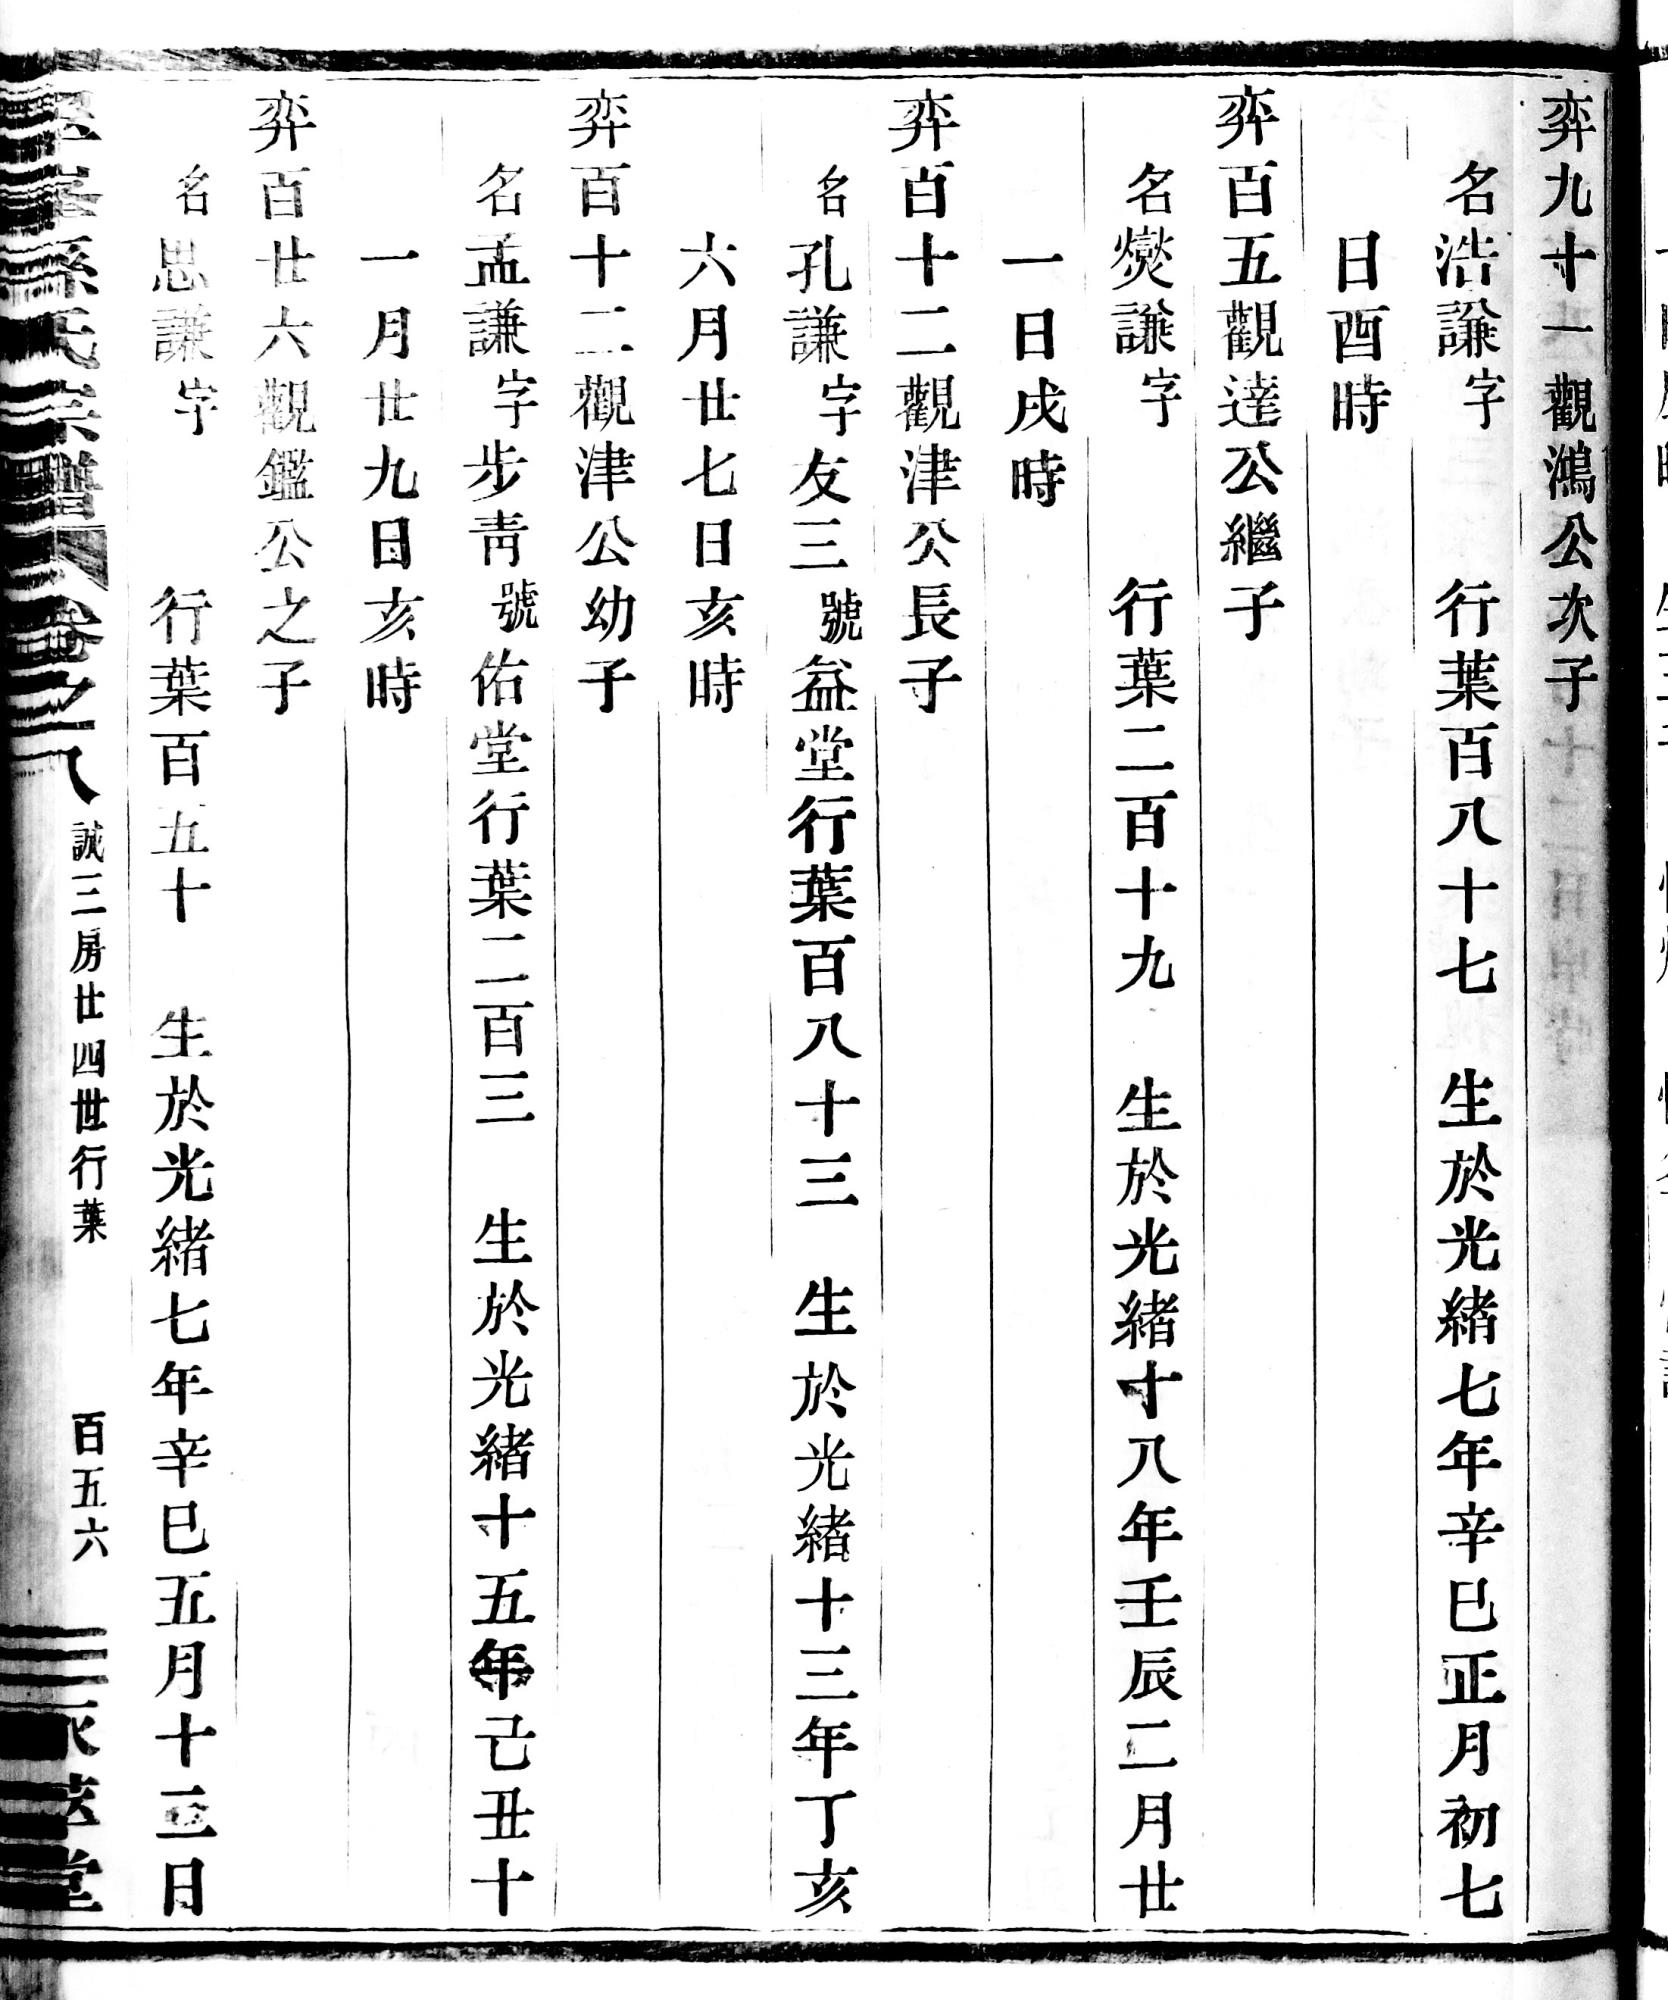 弈九十一觀鴻公次子
名浩謙字　行葉百八十七　生於光緒七年辛巳正月初七
日酉時
弈百五觀達公繼子
名爕謙字　行葉二百十九　生於光緒十八年壬辰二月廿
一日戌時
弈百十二觀津公長子
名孔謙字友三號益堂行葉百八十三　生於光緒十三年丁亥
六月廿七日亥時
弈百十二觀津公幼子
名孟謙字步靑號佑堂行葉二百三　生於光緒十五年己丑十
一月廿九日亥時
弈百廿六觀鑑公之子
名思謙字　行葉百五十　生於光緒七年辛巳五月十三日
孫氏宗譜　卷之八　誠三房廿四世行葉　百五六　堂